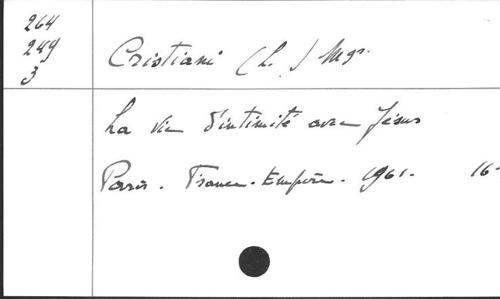 264
249
3
Cristiani (L.) Mgr.
La vie d'intimité avec Jésus
Paris. France-Empire. 1961. 16-